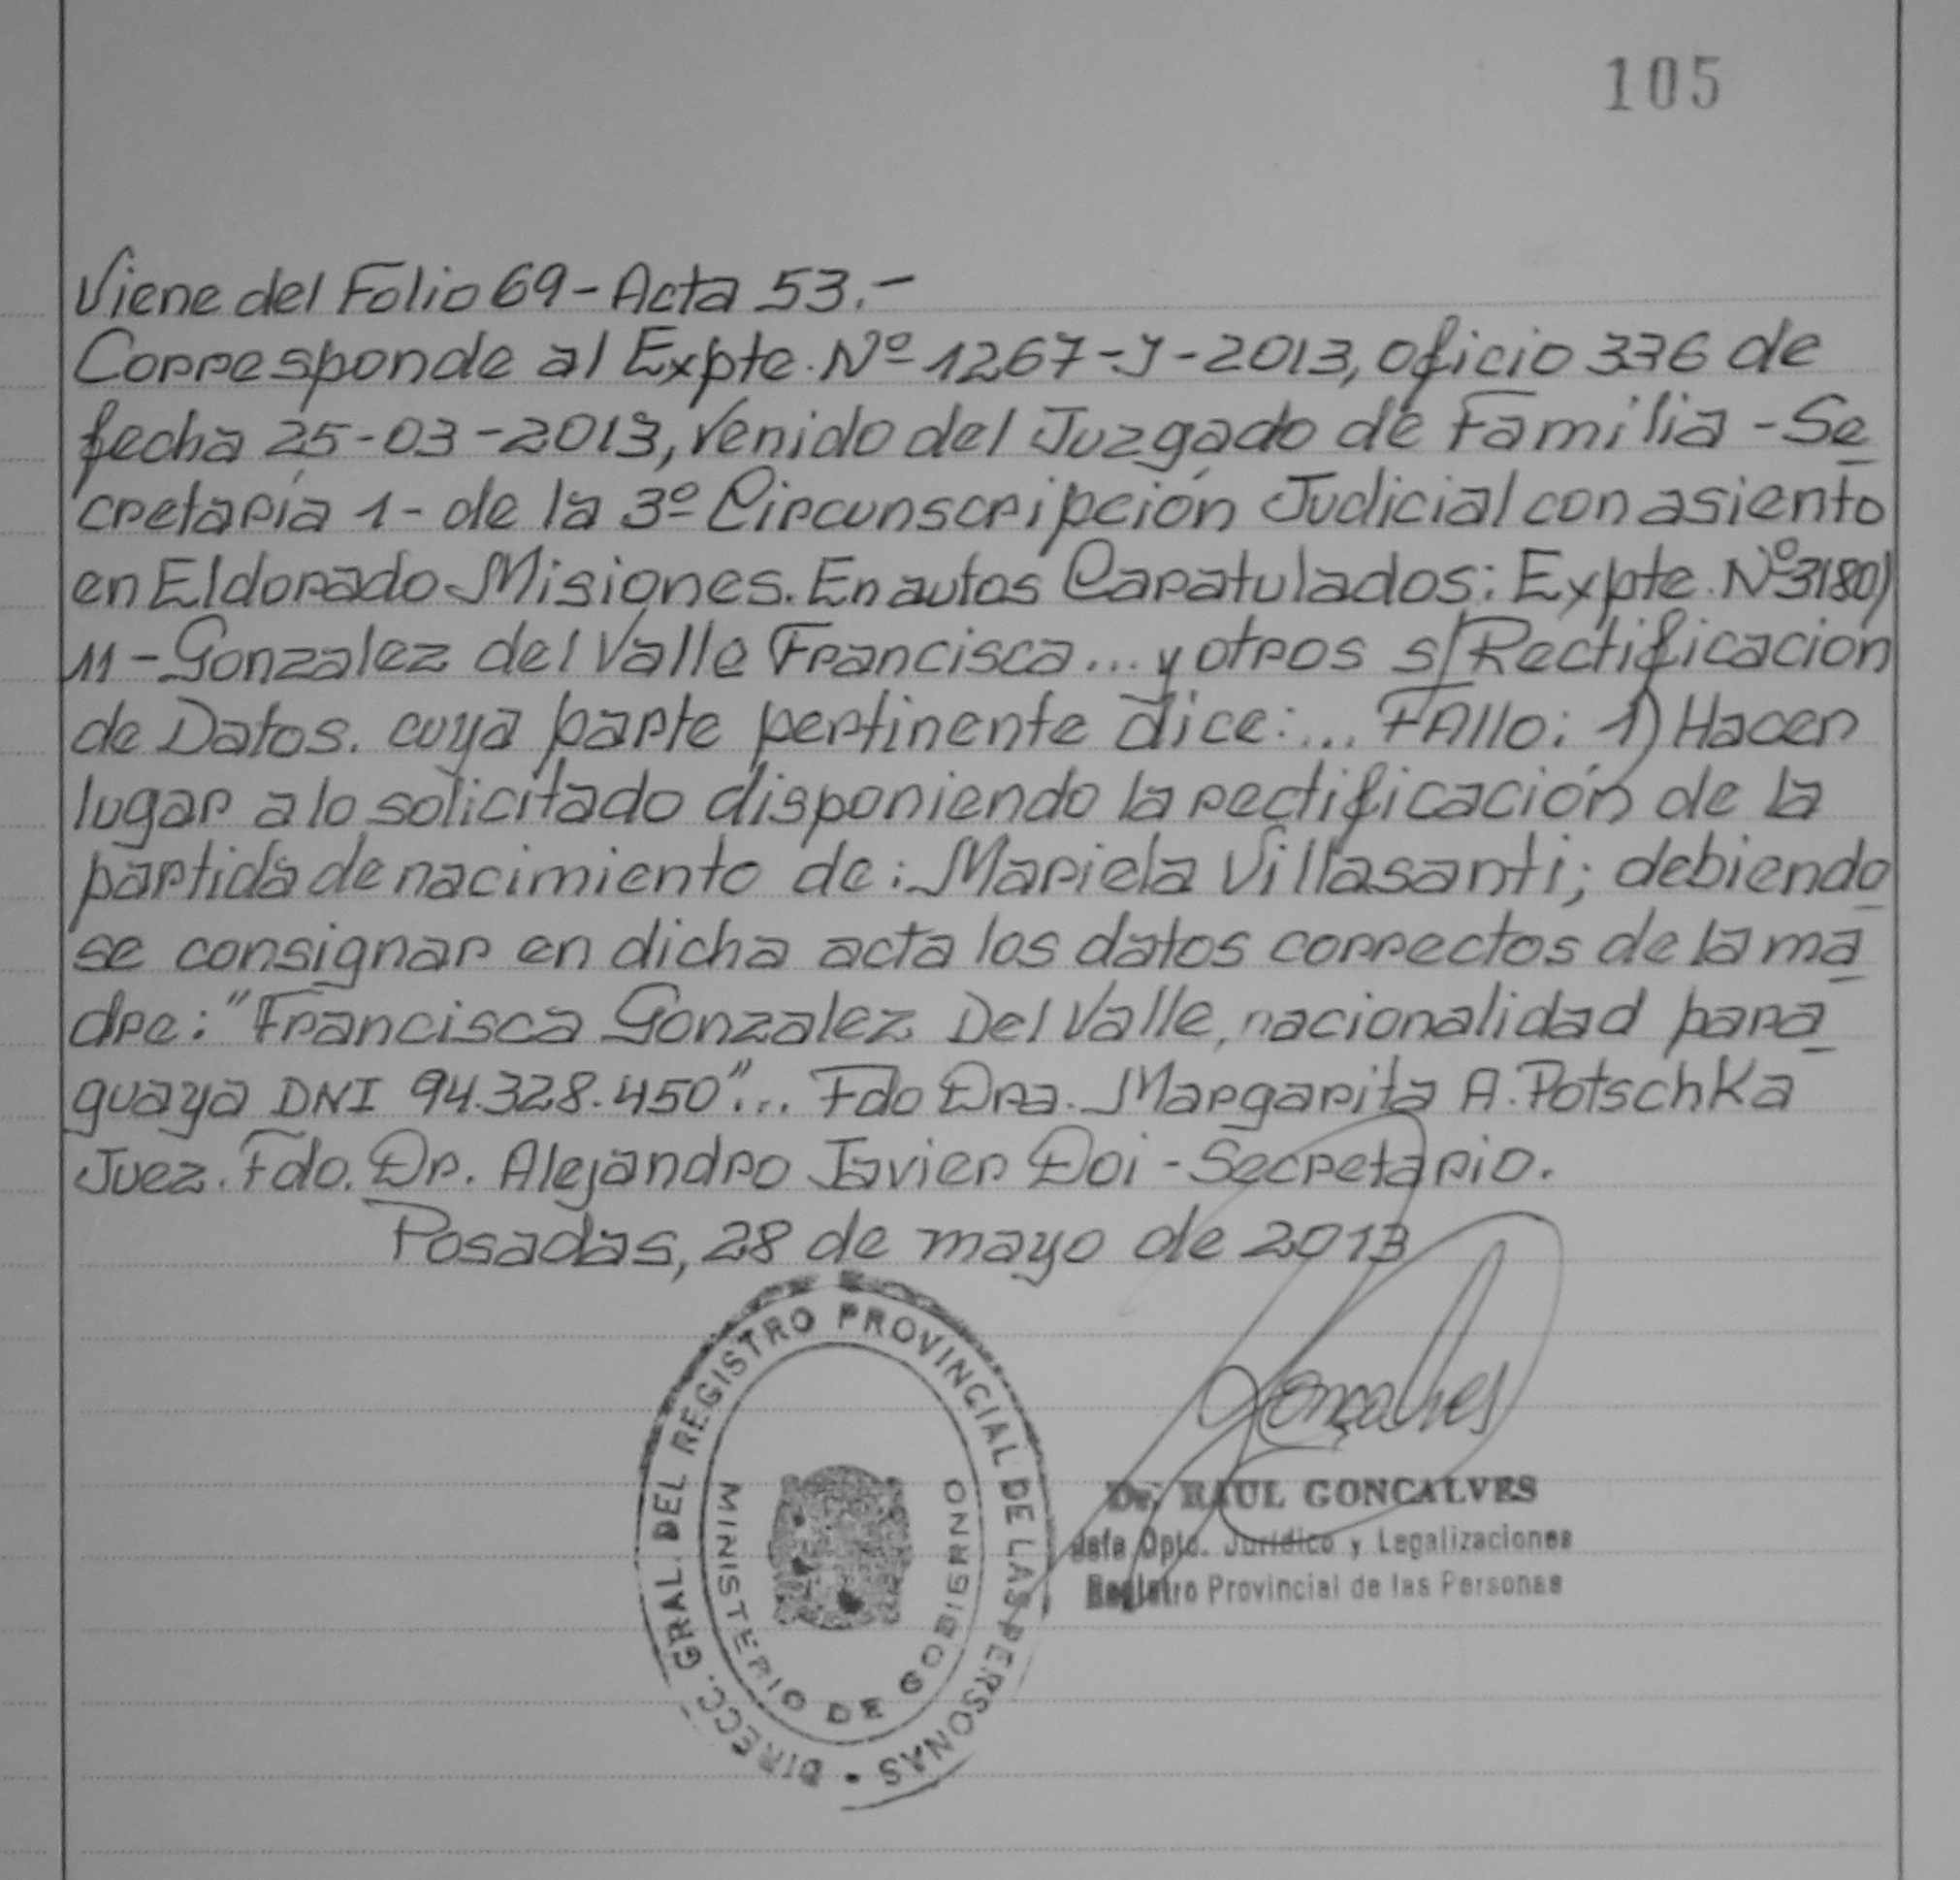 105
Viene del Folio 69 - Acta 53.-
Corresponde al Expte. Nº 1267-J-2013, oficio 336 de
fecha 25-03-2013, venido del Juzgado de Familia - Se
cretaría 1- de la 3º Circunscripción Judicial con asiento
en Eldorado Misiones. En autos Caratulados: Expte. Nº 3180/
11 - Gonzalez del Valle Francisca... y otros s/Rectificación
de Datos. cuya parte pertinente dice:... FAllo: 1) Hacer
lugar a lo solicitado disponiendo la rectificación de la
partida de nacimiento de: Mariela Villasanti; debiendo
se consignar en dicha acta los datos correctos de la ma
dre: "Francisca Gonzalez Del Valle, nacionalidad para
guaya DNI 94.328.450"... Fdo Dra. Margarita A. Potschka
Juez. Fdo. Dr. Alejandro Javier Doi - Secretario.
Posadas, 28 de mayo de 2013
DIRECC. GRAL. DEL REGISTRO PROVINCIAL DE LAS PERSONAS •
MINISTERIO DE GOBIERNO
Goncalves
Dr. RAUL GONCALVES
Jefe Dpto. Jurídico y Legalizaciones
Registro Provincial de las Personas